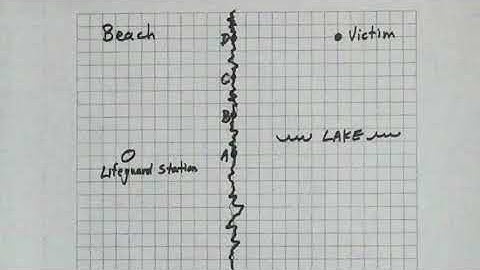 Beach
D
Victim
C
B
LAKE
A
Lifeguard Station